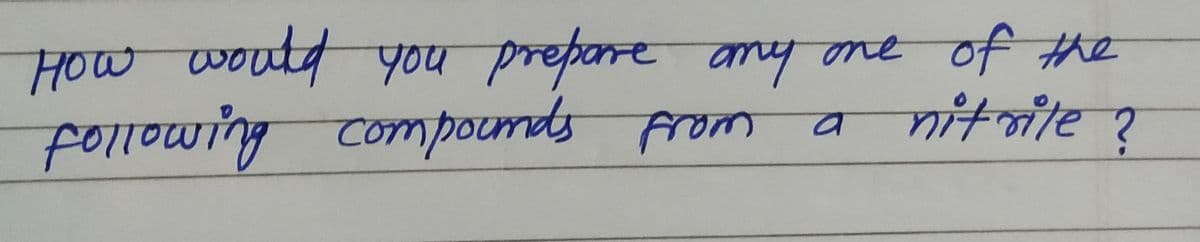 How would you prepare any one of the
following compounds from a nitrile ?